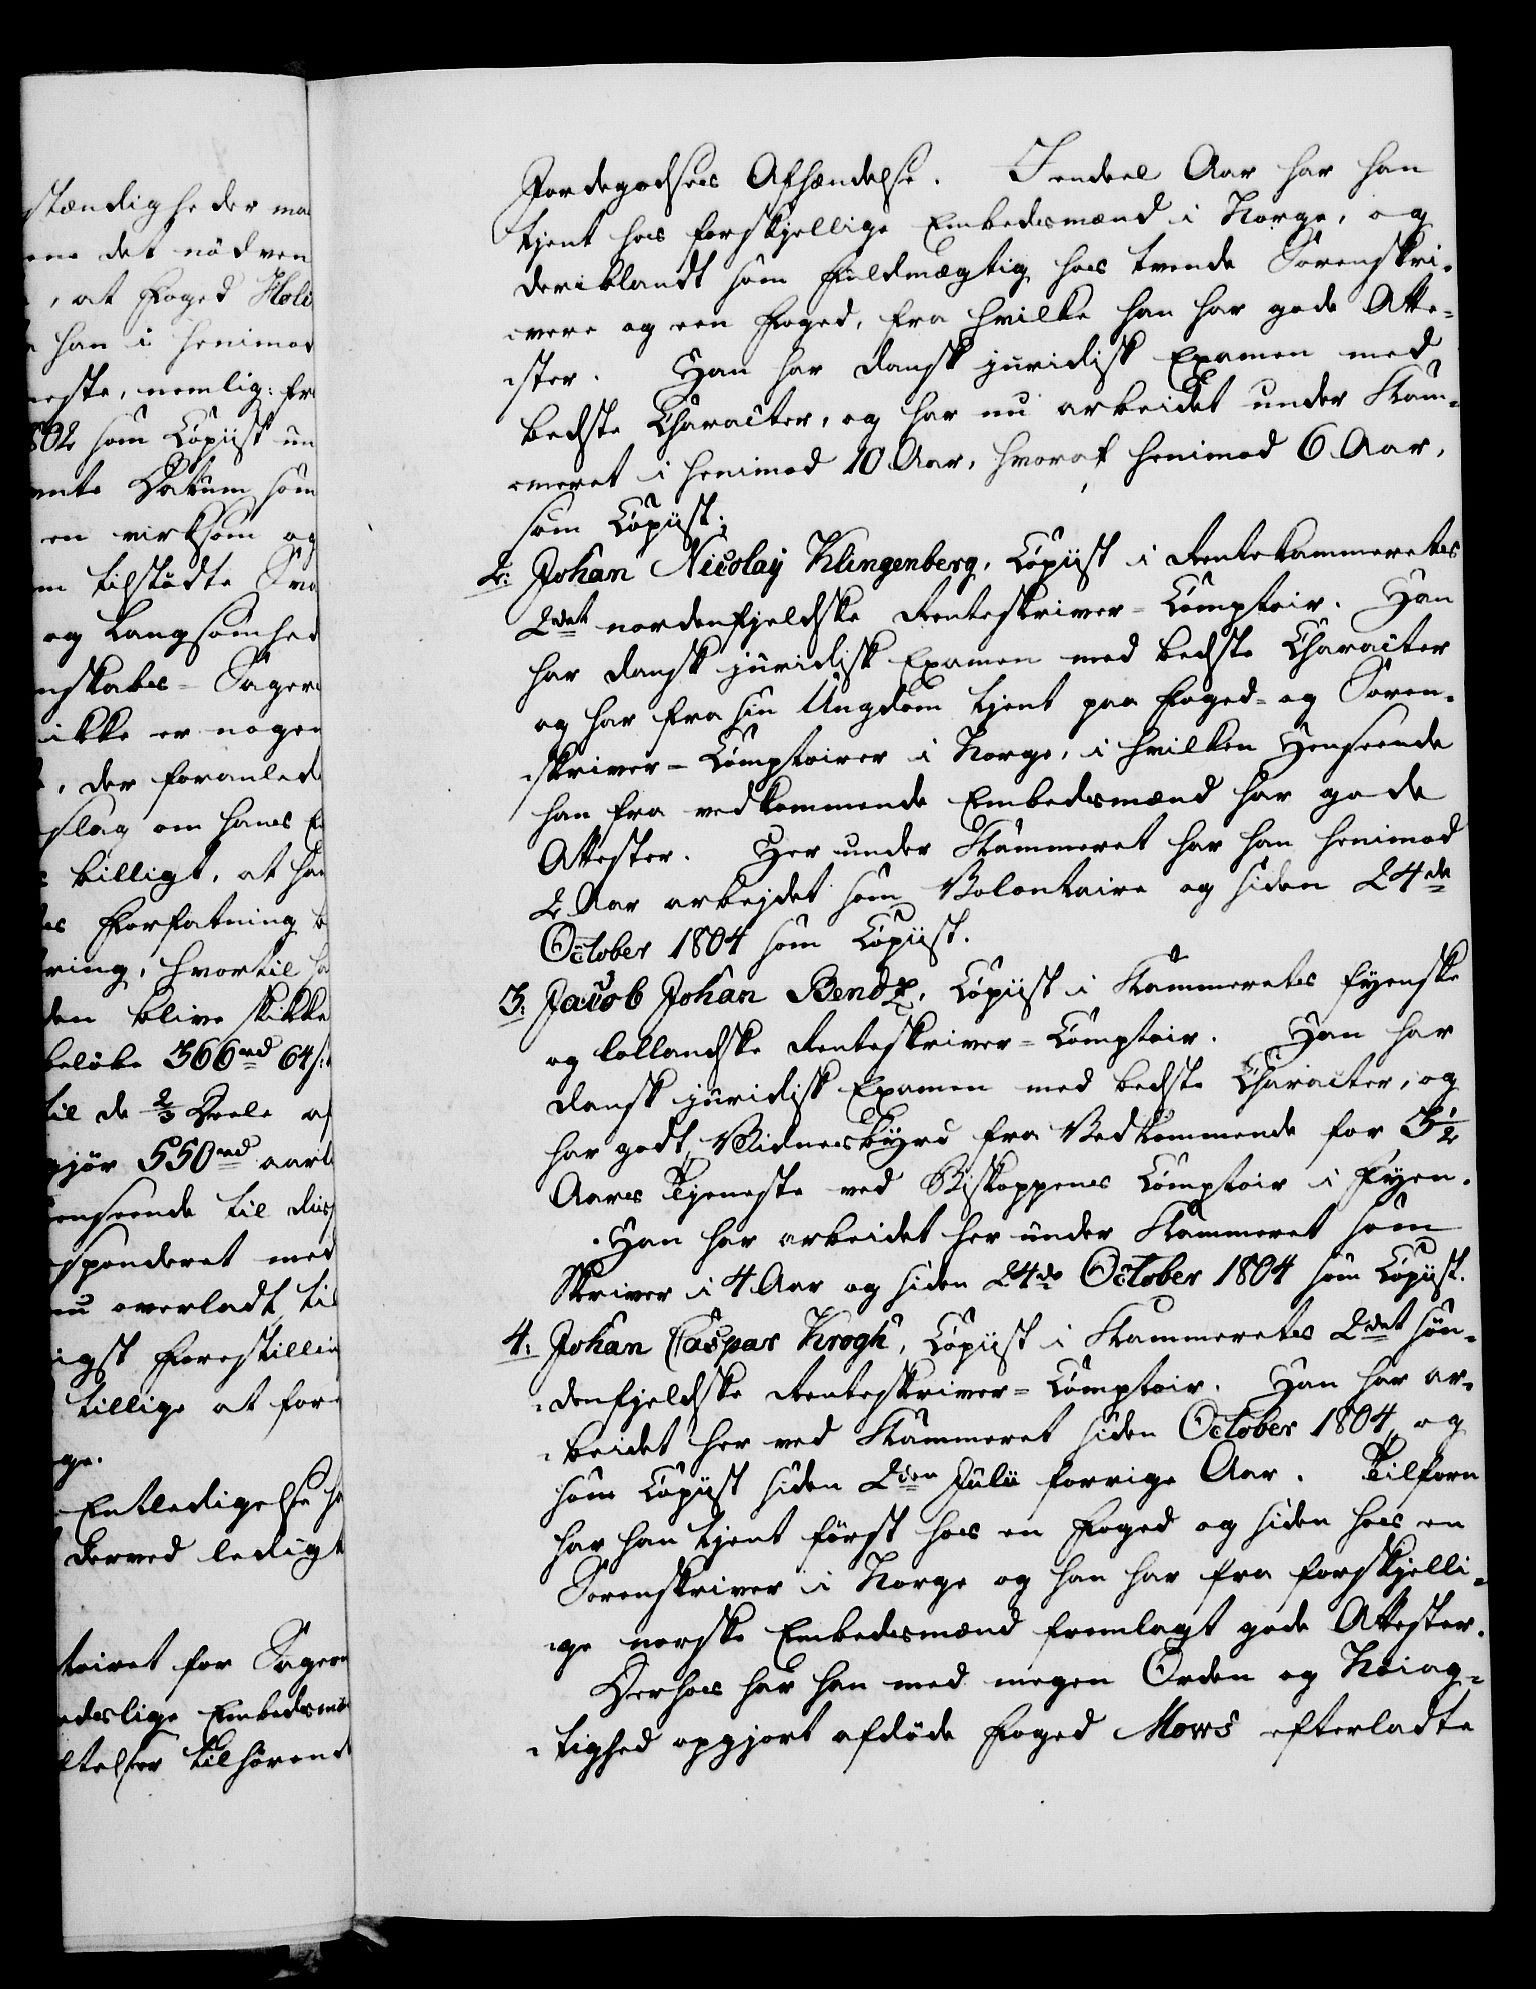 stændigheder ma
ene det nödven
, at Foged Holi
han i henimod
neste, nemlig: fr
802 som Copiist un
mte Datum som
en virksom og
m tilstödte Sva
og Langsomhed
nskabs- Sager
ikke er nogen
, der foranled
slag om hans E
billigt, at han
es Forfatning b
ring, hvortil ha
den blive skikke
beløbe 366 rd 64 s:
til de 2/3 Deele af
gjör 550 rd aarl
enseende til dis
sponderet med
nu overladt til
igst Forestillin
tillige at for
ge.
Entledigelse ha
derved ledigt
toiret for Sager
edslige Embedsmæ
ftelser tilhörend
Jordegodsets Afhændelse. Jendeel Aar har han
tjent hos forskjellige Embedsmænd i Norge, og
deriblandt som Fuldmægtig hos tvende Sorenskri-
-vere og een Foged, fra hvilke han har gode Atte-
-ster. Han har dansk juridisk Examen med
bedste Character, og har nu arbeidet under Kam-
-meret i henimod 10 Aar, hvoraf henimod 6 Aar,
som Copiist;
2: Johan Nicolay Klingenberg, Copiist i Rentekammerets
2det nordenfjeldske Renteskriver-Comptoir. Han
har dansk juridisk Examen med bedste Character
og har fra sin Ungdom tjent paa Foged- og Soren-
-skriver-Comptoirer i Norge, i hvilken Henseende
han fra vedkommende Embedsmænd har gode
Attester. Her under Kammeret har han henimod
2 Aar arbejdet som Volontaire og siden 24de
October 1804 som Copiist.
3: Jacob Johan Bendz, Copiist i Kammerets fyenske
og lollandske Renteskriver-Comptoir. Han har
dansk juridisk Examen med bedste Character, og
har godt Vidnesbyrd fra Vedkommende for 3½
Aars Tjeneste ved Biskoppens Comptoir i Fyen.
Han har arbeidet her under Kammeret som
Skriver i 4 Aar og siden 24de October 1804 som Copiist.
4: Johan Caspar Krogh, Copiist i Kammerets 2det sön-
-denfjeldske Renteskriver-Comptoir. Han har ar-
-beidet her ved Kammeret siden October 1804, og
som Copiist siden 2den Julii forrige Aar. Tilforn
har han tjent först hos en Foged og siden hos en
Sorenskriver i Norge og han har fra forskjelli-
-ge norske Embedsmænd fremlagt gode Attester.
Derhos har han med megen Orden og Nöiag-
-tighed opgjort afdöde Foged Mows efterladte